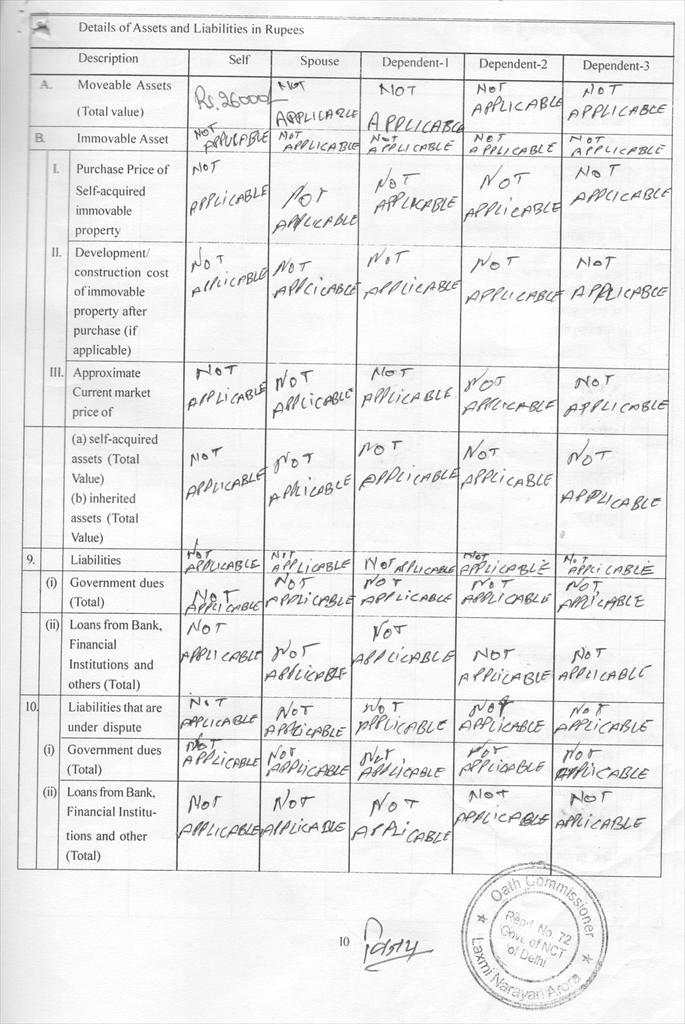 Details of Assets and Liabilities in Rupees
Description Self Spouse Dependent-1 Dependent-2 Dependent-3
A. Moveable Assets (Total value) Rs. 26000/- NOT APPLICABLE NOT APPLICABLE NOT APPLICABLE NOT APPLICABLE
B. Immovable Asset NOT APPLICABLE NOT APPLICABLE NOT APPLICABLE NOT APPLICABLE NOT APPLICABLE
I. Purchase Price of Self-acquired immovable property NOT APPLICABLE NOT APPLICABLE NOT APPLICABLE NOT APPLICABLE NOT APPLICABLE
II. Development/ construction cost of immovable property after purchase (if applicable) NOT APPLICABLE NOT APPLICABLE NOT APPLICABLE NOT APPLICABLE NOT APPLICABLE
III. Approximate Current market price of NOT APPLICABLE NOT APPLICABLE NOT APPLICABLE NOT APPLICABLE NOT APPLICABLE
(a) self-acquired assets (Total Value) (b) inherited assets (Total Value) NOT APPLICABLE NOT APPLICABLE NOT APPLICABLE NOT APPLICABLE NOT APPLICABLE
9. Liabilities NOT APPLICABLE NOT APPLICABLE NOT APPLICABLE NOT APPLICABLE NOT APPLICABLE
(i) Government dues (Total) NOT APPLICABLE NOT APPLICABLE NOT APPLICABLE NOT APPLICABLE NOT APPLICABLE
(ii) Loans from Bank, Financial Institutions and others (Total) NOT APPLICABLE NOT APPLICABLE NOT APPLICABLE NOT APPLICABLE NOT APPLICABLE
10. Liabilities that are under dispute NOT APPLICABLE NOT APPLICABLE NOT APPLICABLE NOT APPLICABLE NOT APPLICABLE
(i) Government dues (Total) NOT APPLICABLE NOT APPLICABLE NOT APPLICABLE NOT APPLICABLE NOT APPLICABLE
(ii) Loans from Bank, Financial Institu- tions and other (Total) NOT APPLICABLE NOT APPLICABLE NOT APPLICABLE NOT APPLICABLE NOT APPLICABLE
10
Oath Commissioner
Regd. No. 72
Govt. of NCT
of Delhi
Laxmi Narayan Arora